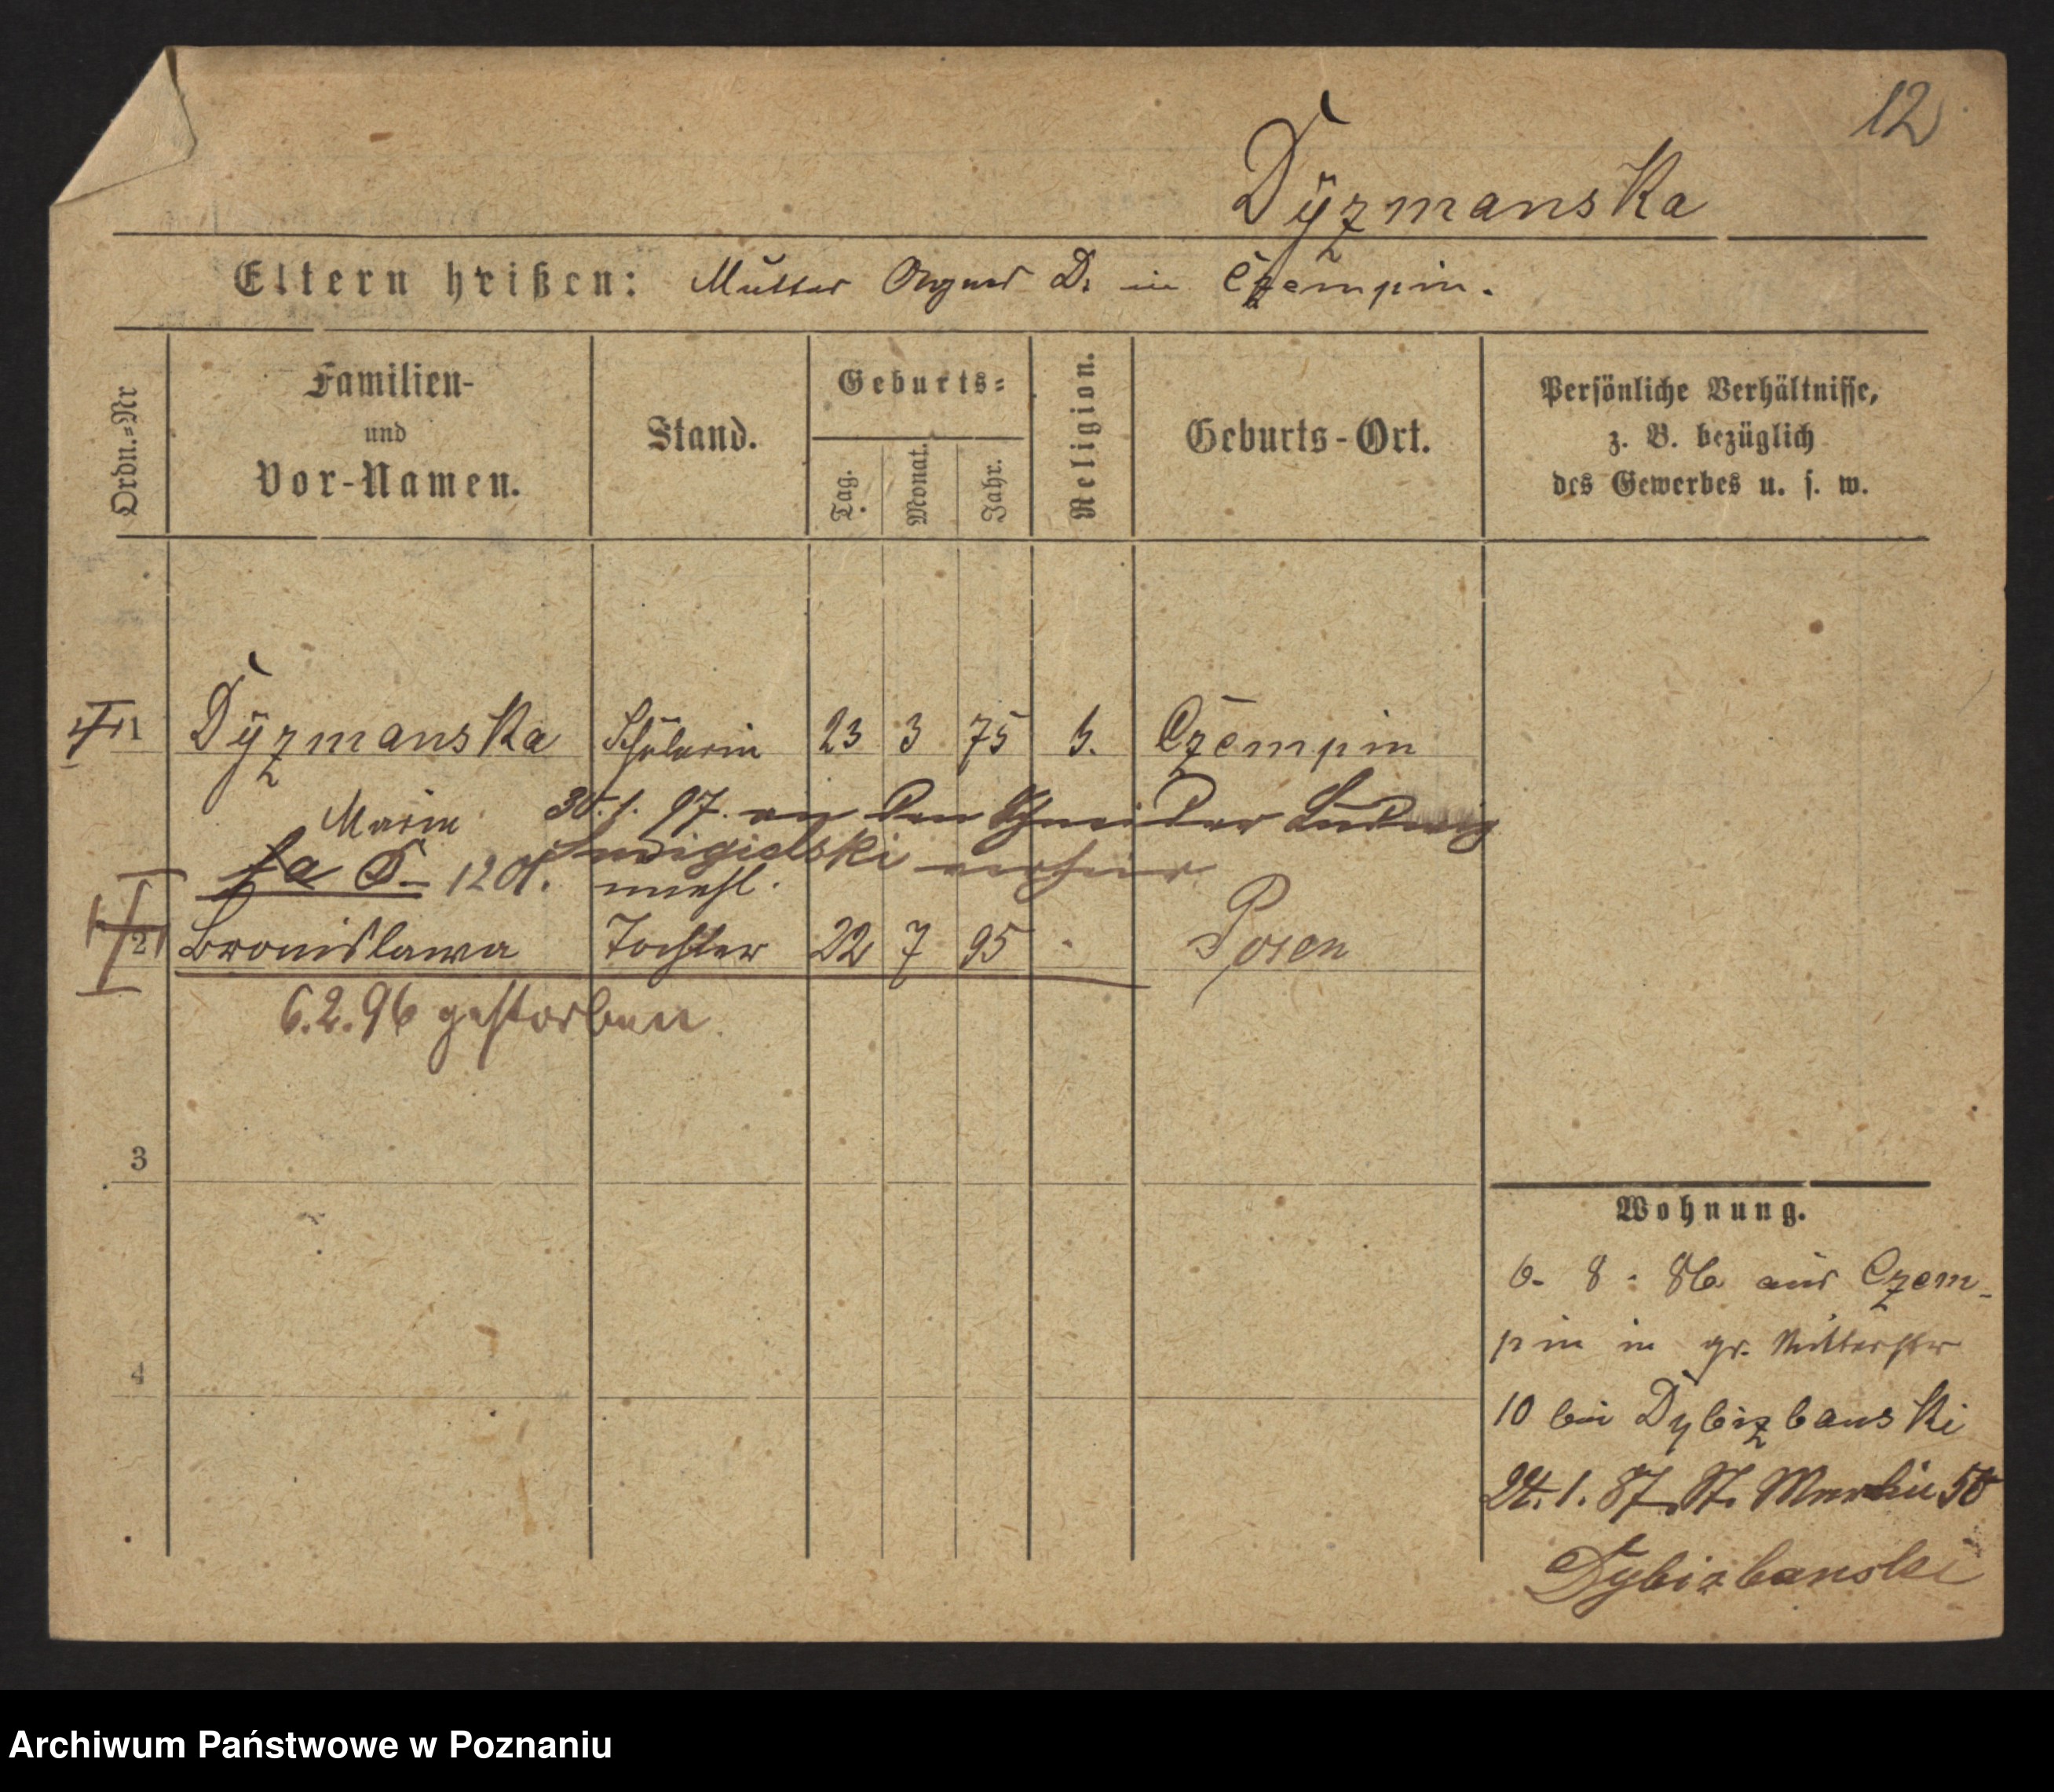 12
Dyzmanska
Eltern heißen: Mutter Agnes D. in Czempin.
Ordn.=Nr
Familien-
und
Vor-Namen.
Stand.
Geburts=
Tag.
Monat.
Jahr.
Religion.
Geburts-Ort.
Persönliche Verhältnisse,
z. B. bezüglich
des Gewerbes u. s. w.
1 Dyzmanska Schülerin 23 3 75 k. Czempin
Marie 30. 1. 97. an den Schneider Ludwig
verheir
unehl.
2 Bronislawa Tochter 22 7 95 Posen
6.2.96 gestorben.
3
4
Wohnung.
6. 8. 86 aus Czem-
pin in gr. Ritterstr
10 bei Dybizbanski
24. 1. 87. St. Martin 58
Dybizbanski
Archiwum Państwowe w Poznaniu